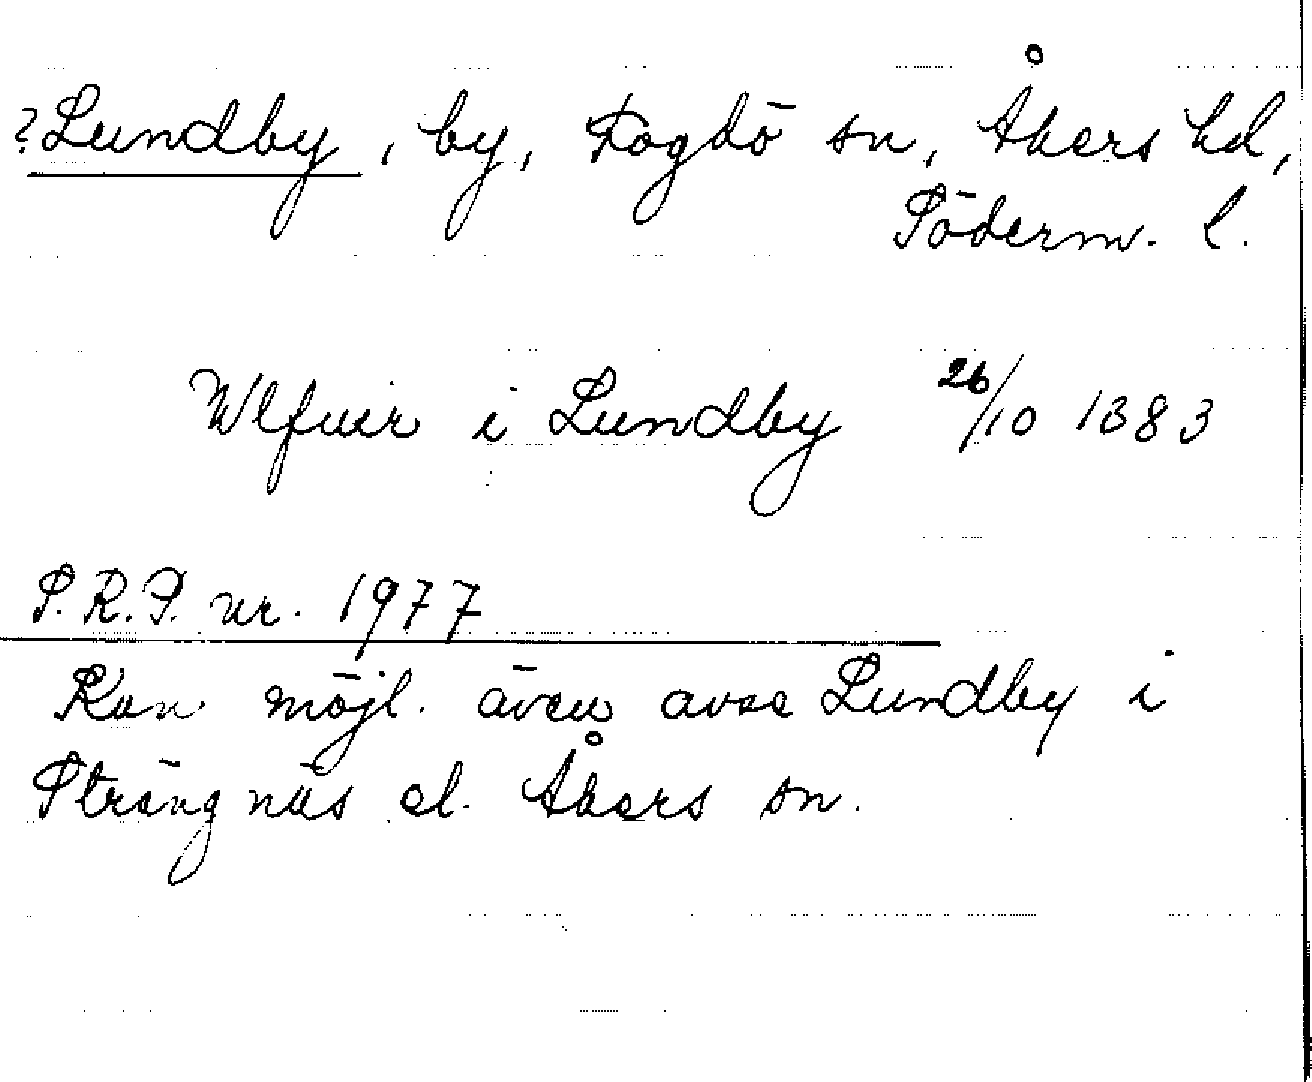 ?Lundby, by, Fogdö sn, Åkers hd,
Söderm. l.
Wlfuir i Lundby 26/10 1383
S.R.P. nr. 1977
Kan möjl. även avse Lundby i
Strängnäs el. Åkers sn.